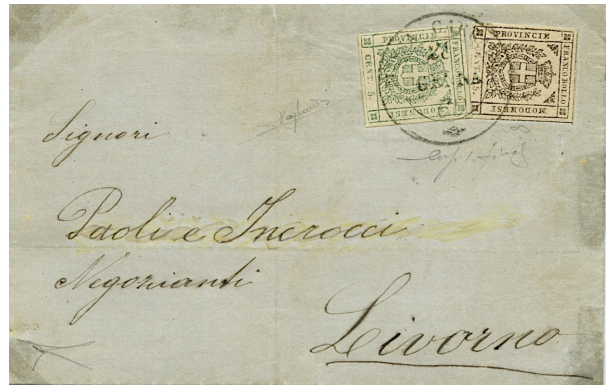 PROVINCIE
FRANCOBOLLO
MODONESI
CENT. 5
PROVINCIE
FRANCOBOLLO
MODONESI
Signori
Paoli e Increcci
Negozianti
Livorno